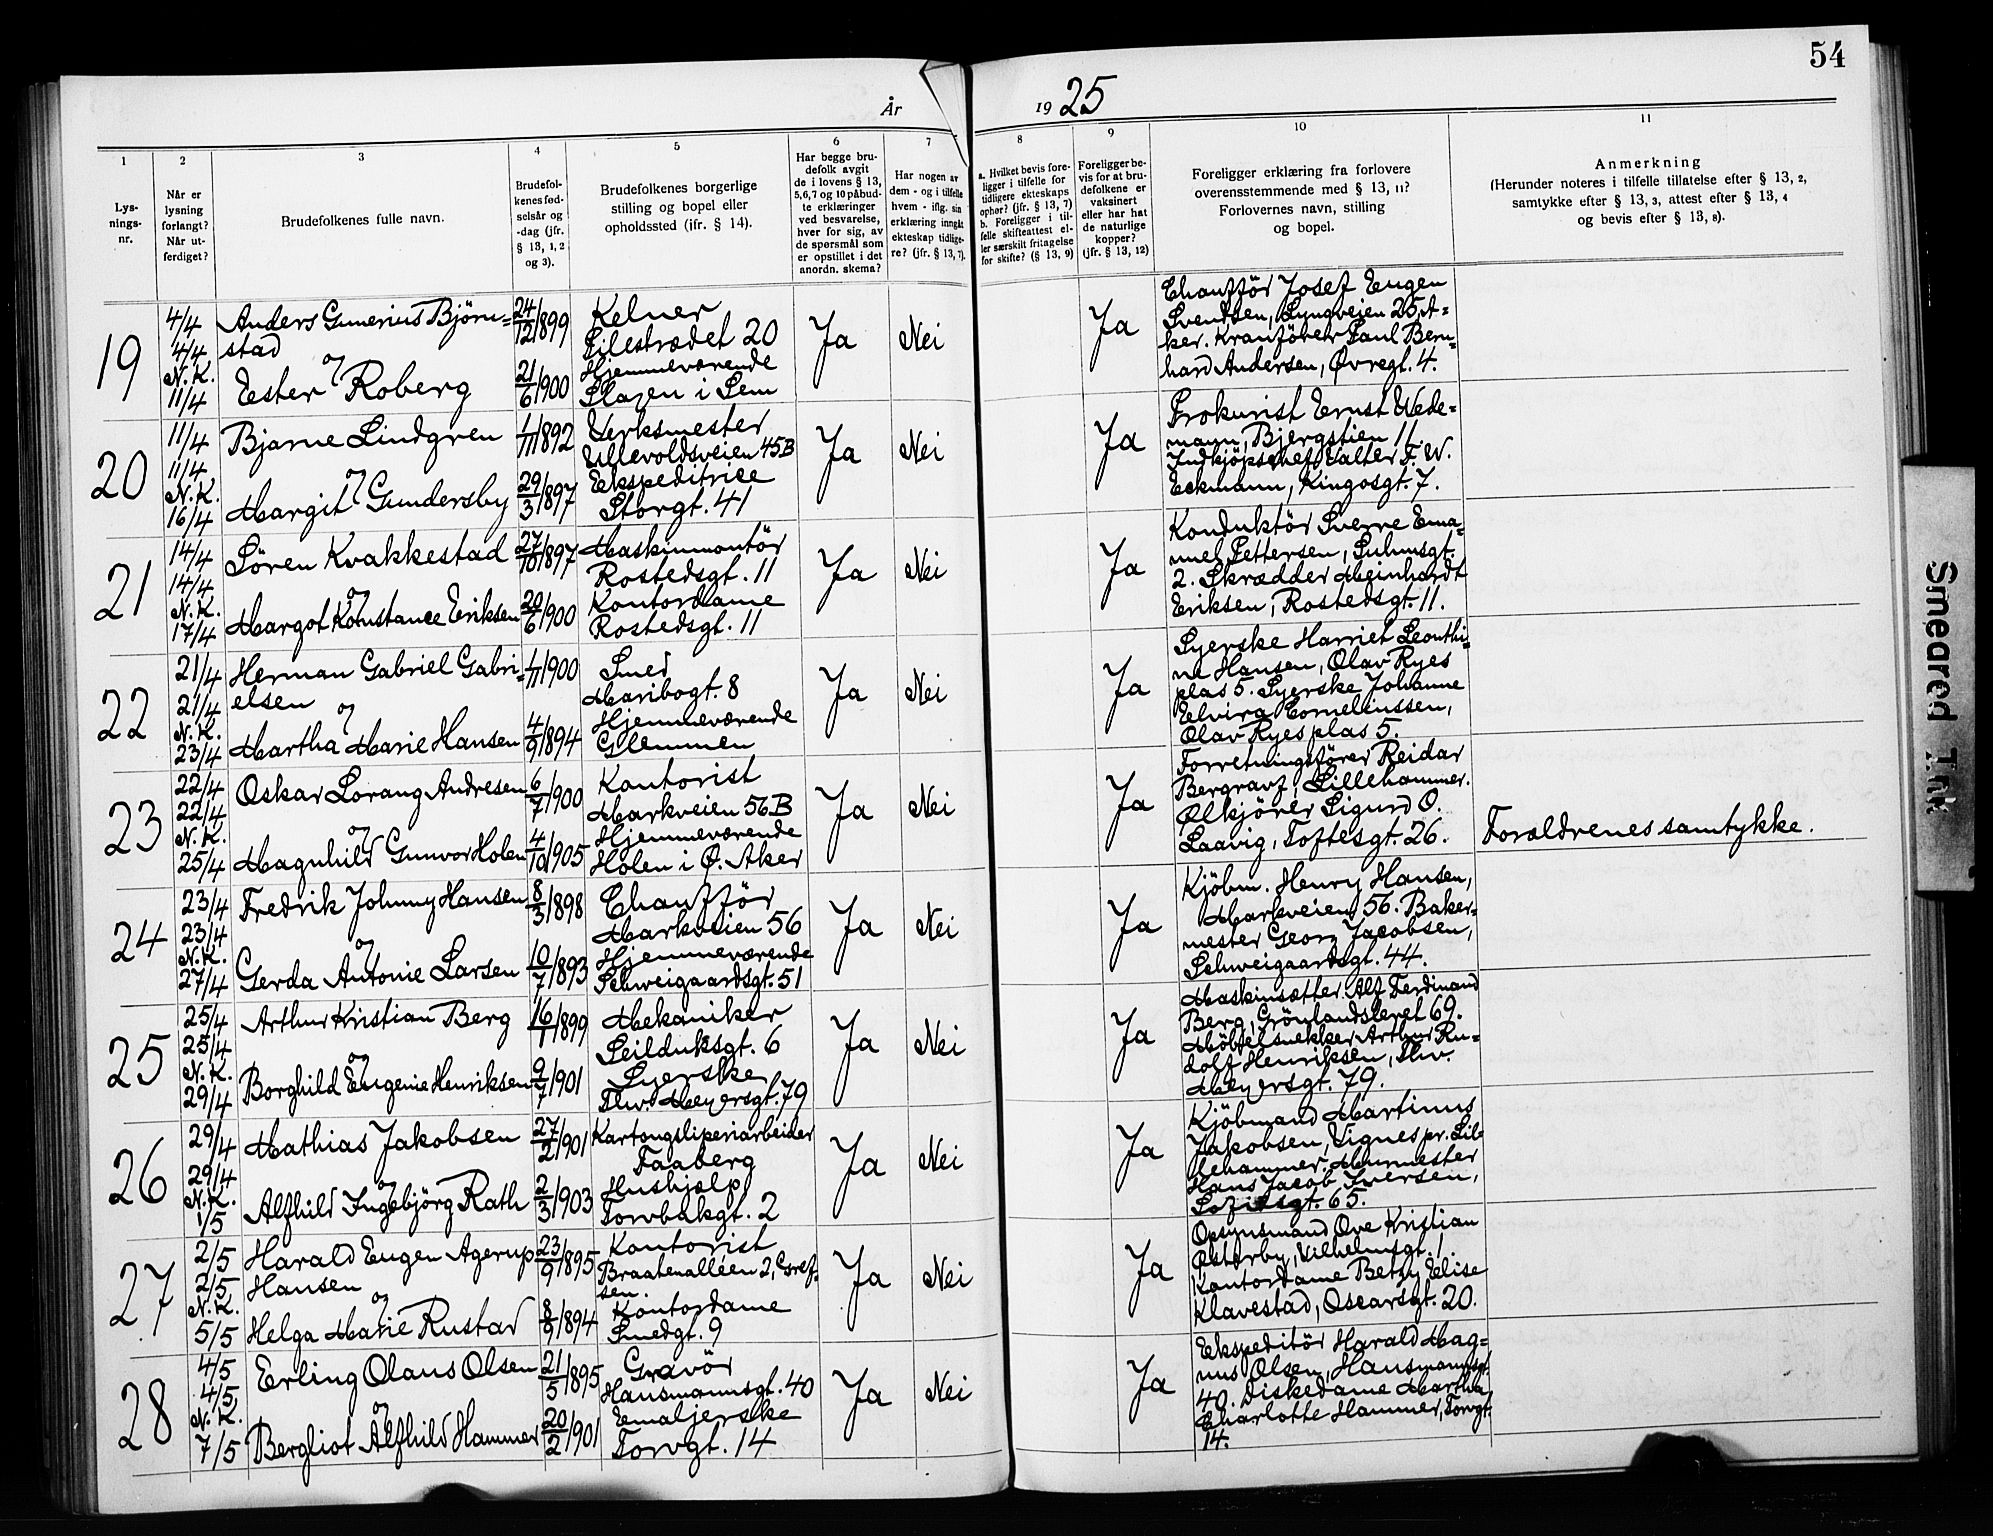 54
År 1925
1 2 3 4 5 6 7 8 9 10 11
Lys-
nings-
nr.
Når er
lysning
forlangt?
Når ut-
ferdiget?
Brudefolkenes fulle navn.
Brudefol-
kenes fød-
selsår og
-dag (jfr.
§ 13, 1, 2
og 3).
Brudefolkenes borgerlige
stilling og bopel eller
opholdssted (ifr. § 14).
Har begge bru-
defolk avgit
de i lovens § 13,
5,6,7 og 10 påbud-
te erklæringer
ved besvarelse,
hver for sig, av
de spørsmål som
er opstillet i det
anordn. skema?
Har nogen av
dem - og i tilfelle
hvem - iflg. sin
erklæring inngått
ekteskap tidlige-
re? (jfr. § 13, 7).
a. Hvilket bevis fore-
ligger i tilfelle for
tidligere ekteskaps
ophør? (jfr. § 13, 7)
b. Foreligger i til-
felle skifteattest el-
ler særskilt fritagelse
for skifte? (§ 13, 9)
Foreligger be-
vis for at bru-
defolkene er
vaksinert
eller har hat
de naturlige
kopper?
(jfr. § 13, 12)
Foreligger erklæring fra forlovere
overensstemmende med § 13, 11?
Forlovernes navn, stilling
og bopel.
Anmerkning
(Herunder noteres i tilfelle tillatelse efter § 13, 2,
samtykke efter § 13, 3, attest efter § 13, 4
og bevis efter § 13, 8).
19
4/4
4/4
N.K.
11/4
Anders Gunerius Bjørn=
stad
og
Ester Roberg
24/12 1899
21/6 1900
Kelner
Pilestrædet 20
Hjemmeværende
Slagen i Sem
Ja
Nei
Ja
Chaufför Josef Eugen
Svendsen, Lyngveien 25, A=
ker. Kranförer Paul Bern=
hard Andersen, Øvregt. 4.
20
11/4
11/4
N.K.
16/4
Bjarne Lindgren
og
Margit Gundersby
1/11 1892
29/3 1897
Verksmester
Ullevoldsveien 45B
Ekspeditrice
Storgt. 41
Ja
Nei
Ja
Prokurist Ernst Wede=
mann, Bjergstien 11.
Indkjöpschef Valter F. W.
Eckmann, Kingosgt. 7.
21
14/4
14/4
N.K.
17/4
Sören Kvakkestad
og
Margot Konstance Eriksen
27/10 1897
20/6 1900
Maskinmontör
Rostedsgt. 11
Kontordame
Rostedsgt. 11
Ja
Nei
Ja
Konduktör Sverre Ema=
nuel Pettersen, Suhmsgt.
2. Skrædder Meinhardt
Eriksen, Rostedsgt. 11.
22
21/4
21/4
N.K.
23/4
Herman Gabriel Gabri=
elsen
og
Martha Marie Hansen
1/11 1900
4/9 1894
Smed
Maribogt. 8
Hjemmeværende
Glemmen
Ja
Nei
Ja
Syerske Harriet Leonthi=
ne Hansen, Olav Ryes
plas 5. Syerske Johanne
Elvira Cornelinssen,
Olav Ryes plas 5.
23
22/4
22/4
N.K.
25/4
Oskar Lorang Andresen
og
Magnhild Gunvor Holen
6/7 1900
4/10 1905
Kontorist
Markveien 56B
Hjemmeværende
Holen i Ö. Aker
Ja
Nei
Ja
Forretningsförer Reidar
Bergravf, Lillehammer.
Ölkjörer Sigurd O.
Laavig, Toftesgt. 26.
Forældrenes samtykke.
24
23/4
23/4
N.K.
27/4
Fredrik Johnny Hansen
og
Gerda Antonie Larsen
8/3 1898
10/7 1893
Chaufför
Markveien 56
Hjemmeværende
Schweigaardsgt. 51
Ja
Nei
Ja
Kjöbm. Henry Hansen,
Markveien 56. Baker=
mester Georg Jacobsen,
Schweigaardsgt. 44.
25
25/4
25/4
N.K.
29/4
Arthur Kristian Berg
og
Borghild Eugenie Henriksen
16/1 1899
9/7 1901
Mekaniker
Seilduksgt. 6
Syerske
Thv. Meyersgt. 79
Ja
Nei
Ja
Maskinsætter Alf Ferdinand
Berg, Grönlandsleret 69.
Möbelsnekker Arthur Ru=
dolf Henriksen, Thv.
Meyersgt. 79.
26
29/4
29/4
N.K.
1/5
Mathias Jakobsen
og
Alfhild Ingebjörg Rath
27/2 1901
2/3 1903
Kartongsliperiarbeider
Faaberg
Hushjælp
Torvbakgt. 2
Ja
Nei
Ja
Kjöbmand Martinus
Jakobsen, Vignes pr. Lil=
lehammer. Murmester
Hans Jacob Iversen,
Sofiesgt. 65.
27
2/5
2/5
N.K.
5/5
Harald Eugen Agerup
Hansen
og
Helga Marie Rustad
23/9 1895
8/9 1894
Kontorist
Braatenalléen 2, Gref=
sen.
Kontordame
Smedgt. 9
Ja
Nei
Ja
Opsynsmand Ove Kristian
Österby, Vilhelmsgt. 1.
Kontordame Betsy Elise
Klavestad, Oscarsgt. 20.
28
4/5
4/5
N.K.
7/5
Erling Olaus Olsen
og
Bergliot Alfhild Hammer
21/5 1895
20/2 1901
Gravör
Hausmannsgt. 40
Emaljerske
Torvgt. 14
Ja
Nei
Ja
Ekspeditör Harald Mag=
nus Olsen, Hausmannsgt.
40. Diskedame Martha
Charlotte Hammer, Torvgt.
14.
Smeared Ink